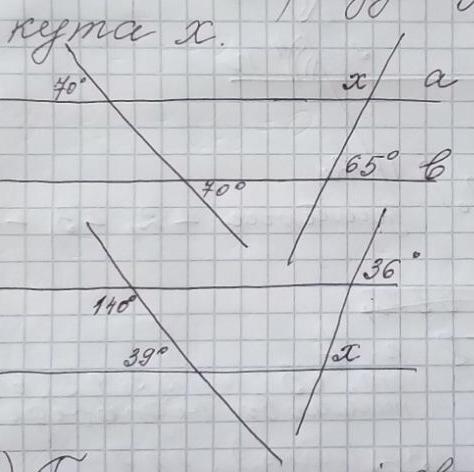 кута x.
70° x a
70° 65° b
140° 36°
39° x